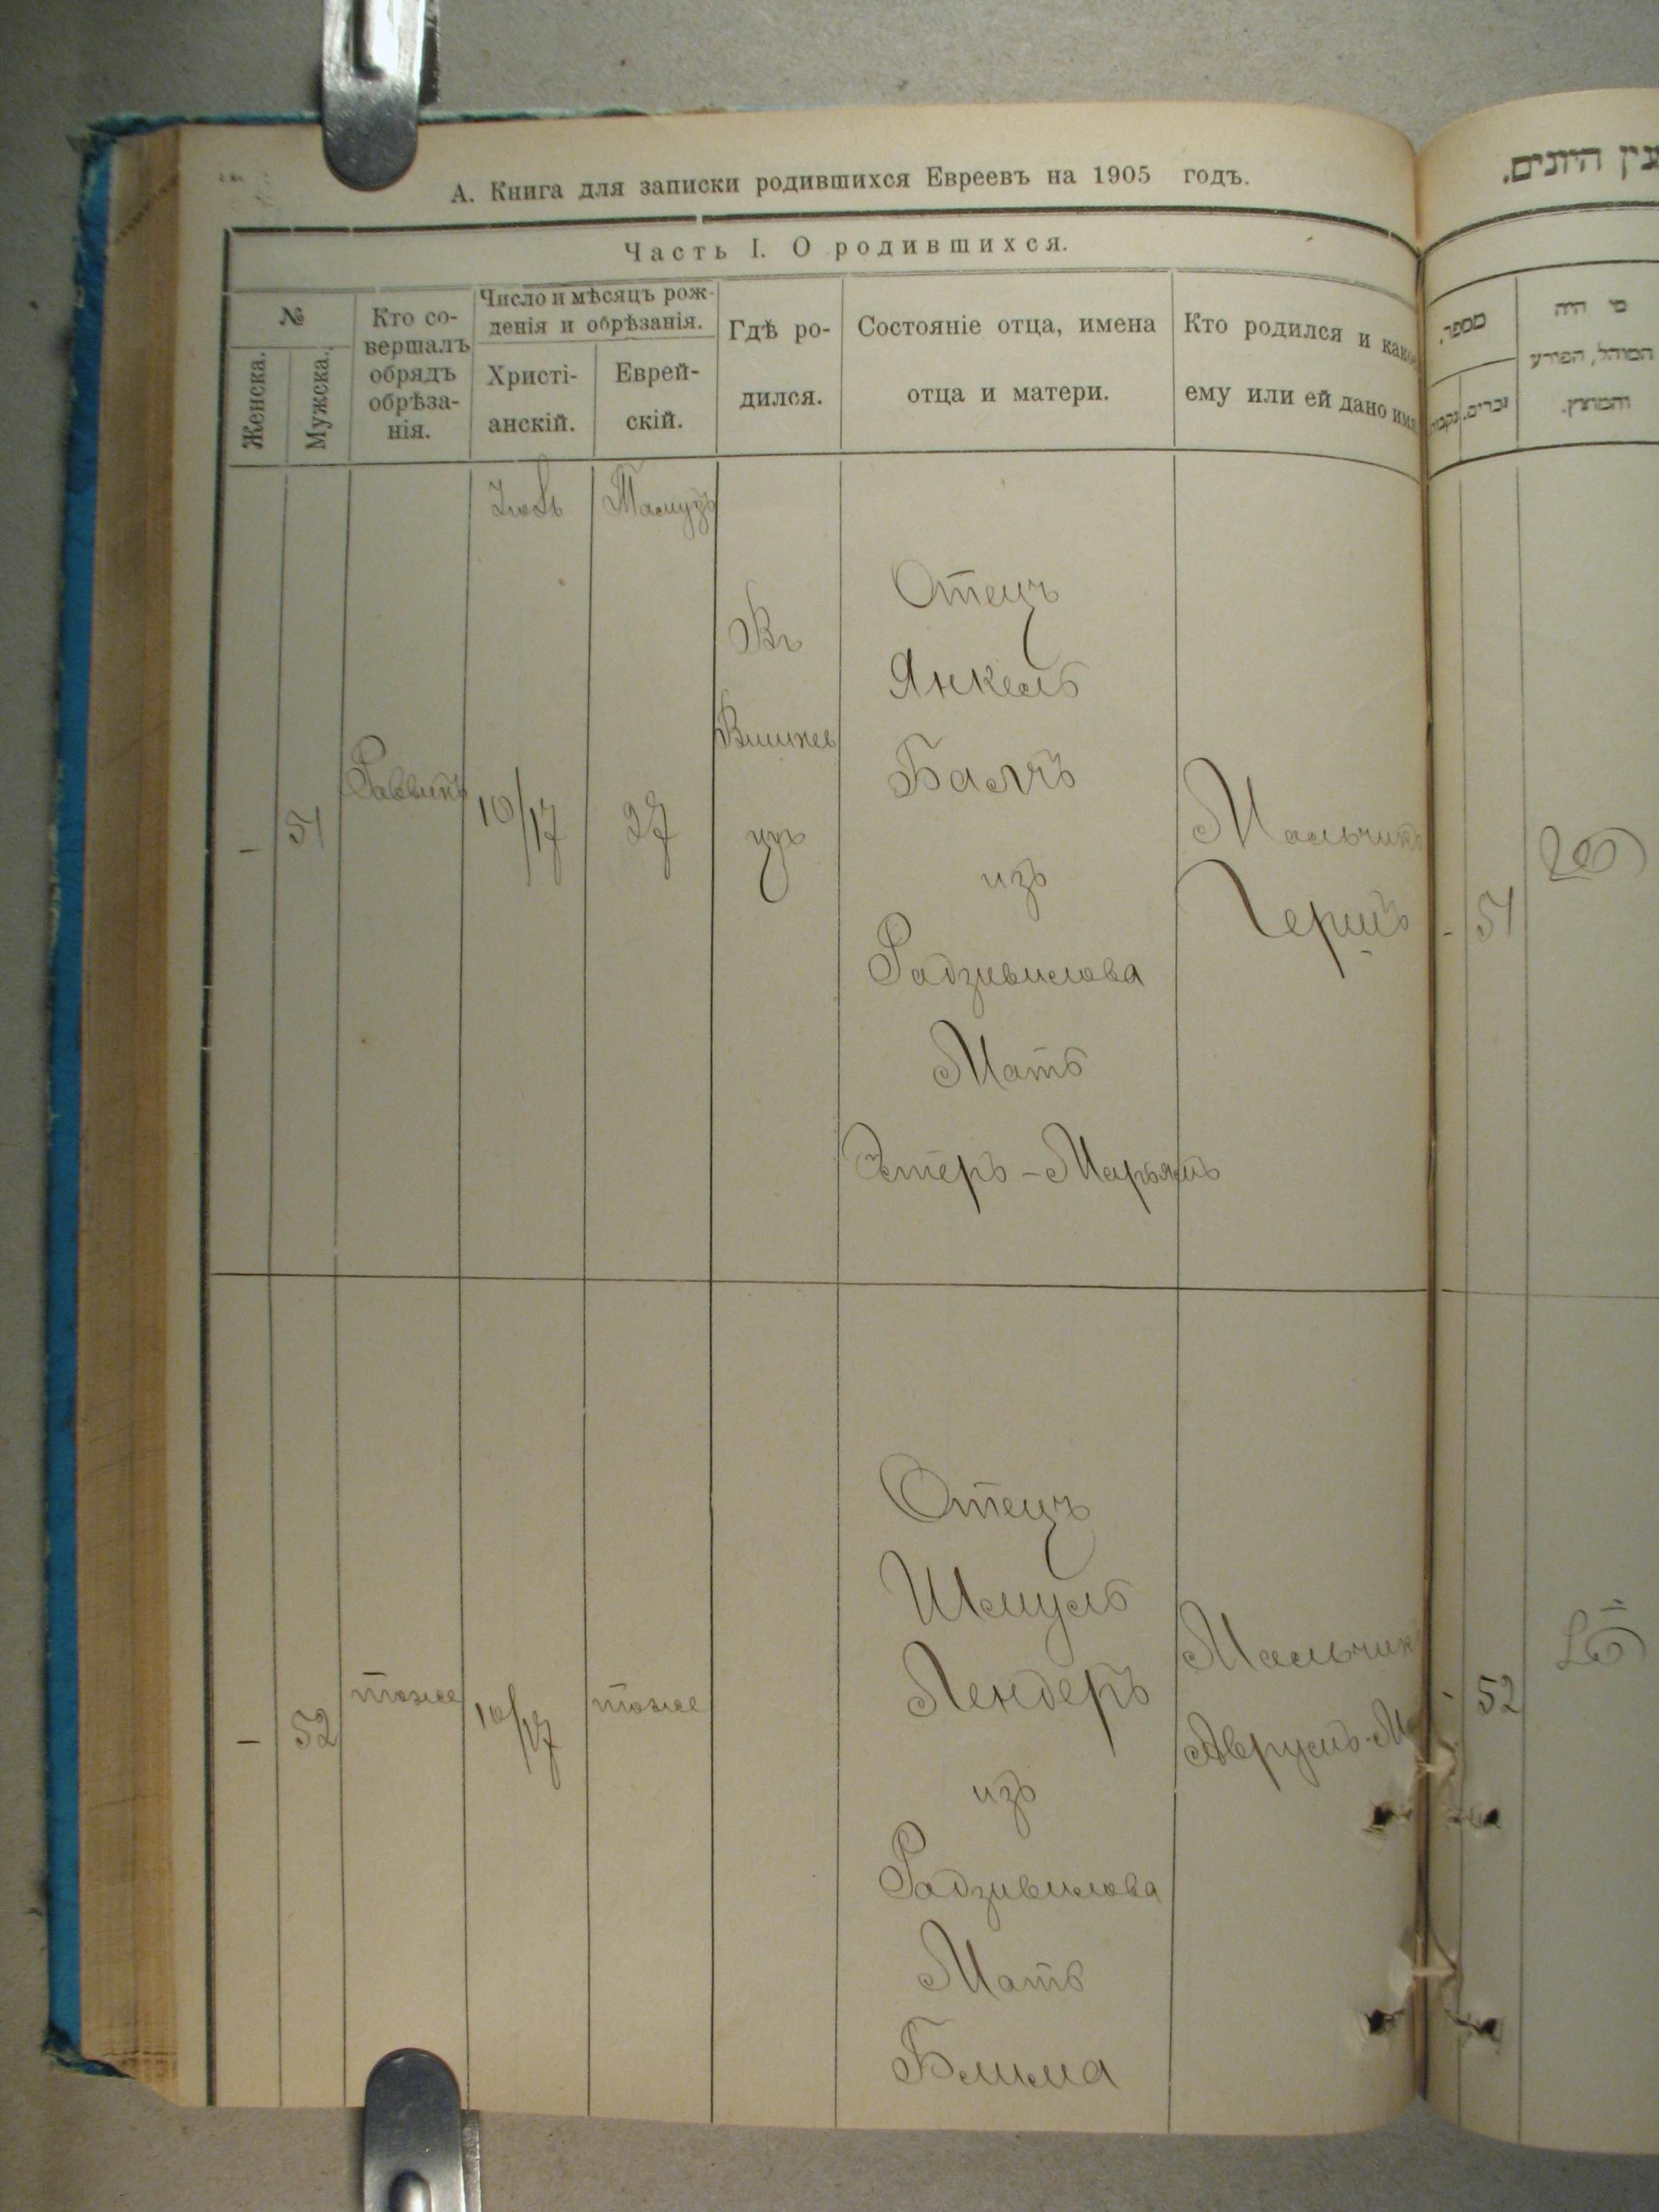 А. Книга для записки родившихся Евреевъ на 1905 годъ.
Часть I. О родившихся.
№
Женска.
Мужска.
Кто со-
вершалъ
обрядъ
обрѣза-
нія.
Число и мѣсяцъ рож-
денія и обрѣзанія.
Христі-
анскій.
Еврей-
скій.
Гдѣ ро-
дился.
Состояніе отца, имена
отца и матери.
Кто родился и какое
ему или ей дано имя
–
51
Раввинъ
Іюль
10/17
Тамузъ
27
Въ
Вишнев
цѣ
Отецъ
Янкель
Балчъ
изъ
Радзивилова
Мать
Эстеръ-Марьямъ
Мальчикъ
Гершъ
–
52
тоже
10/17
тоже
Отецъ
Шмуль
Лендеръ
изъ
Радзивилова
Мать
Блима
Мальчикъ
Аврумъ-М
מספר.
נקבות
זכרים.
מי היה
המוהל, הפורע
והמוצץ.
- 51
- 52